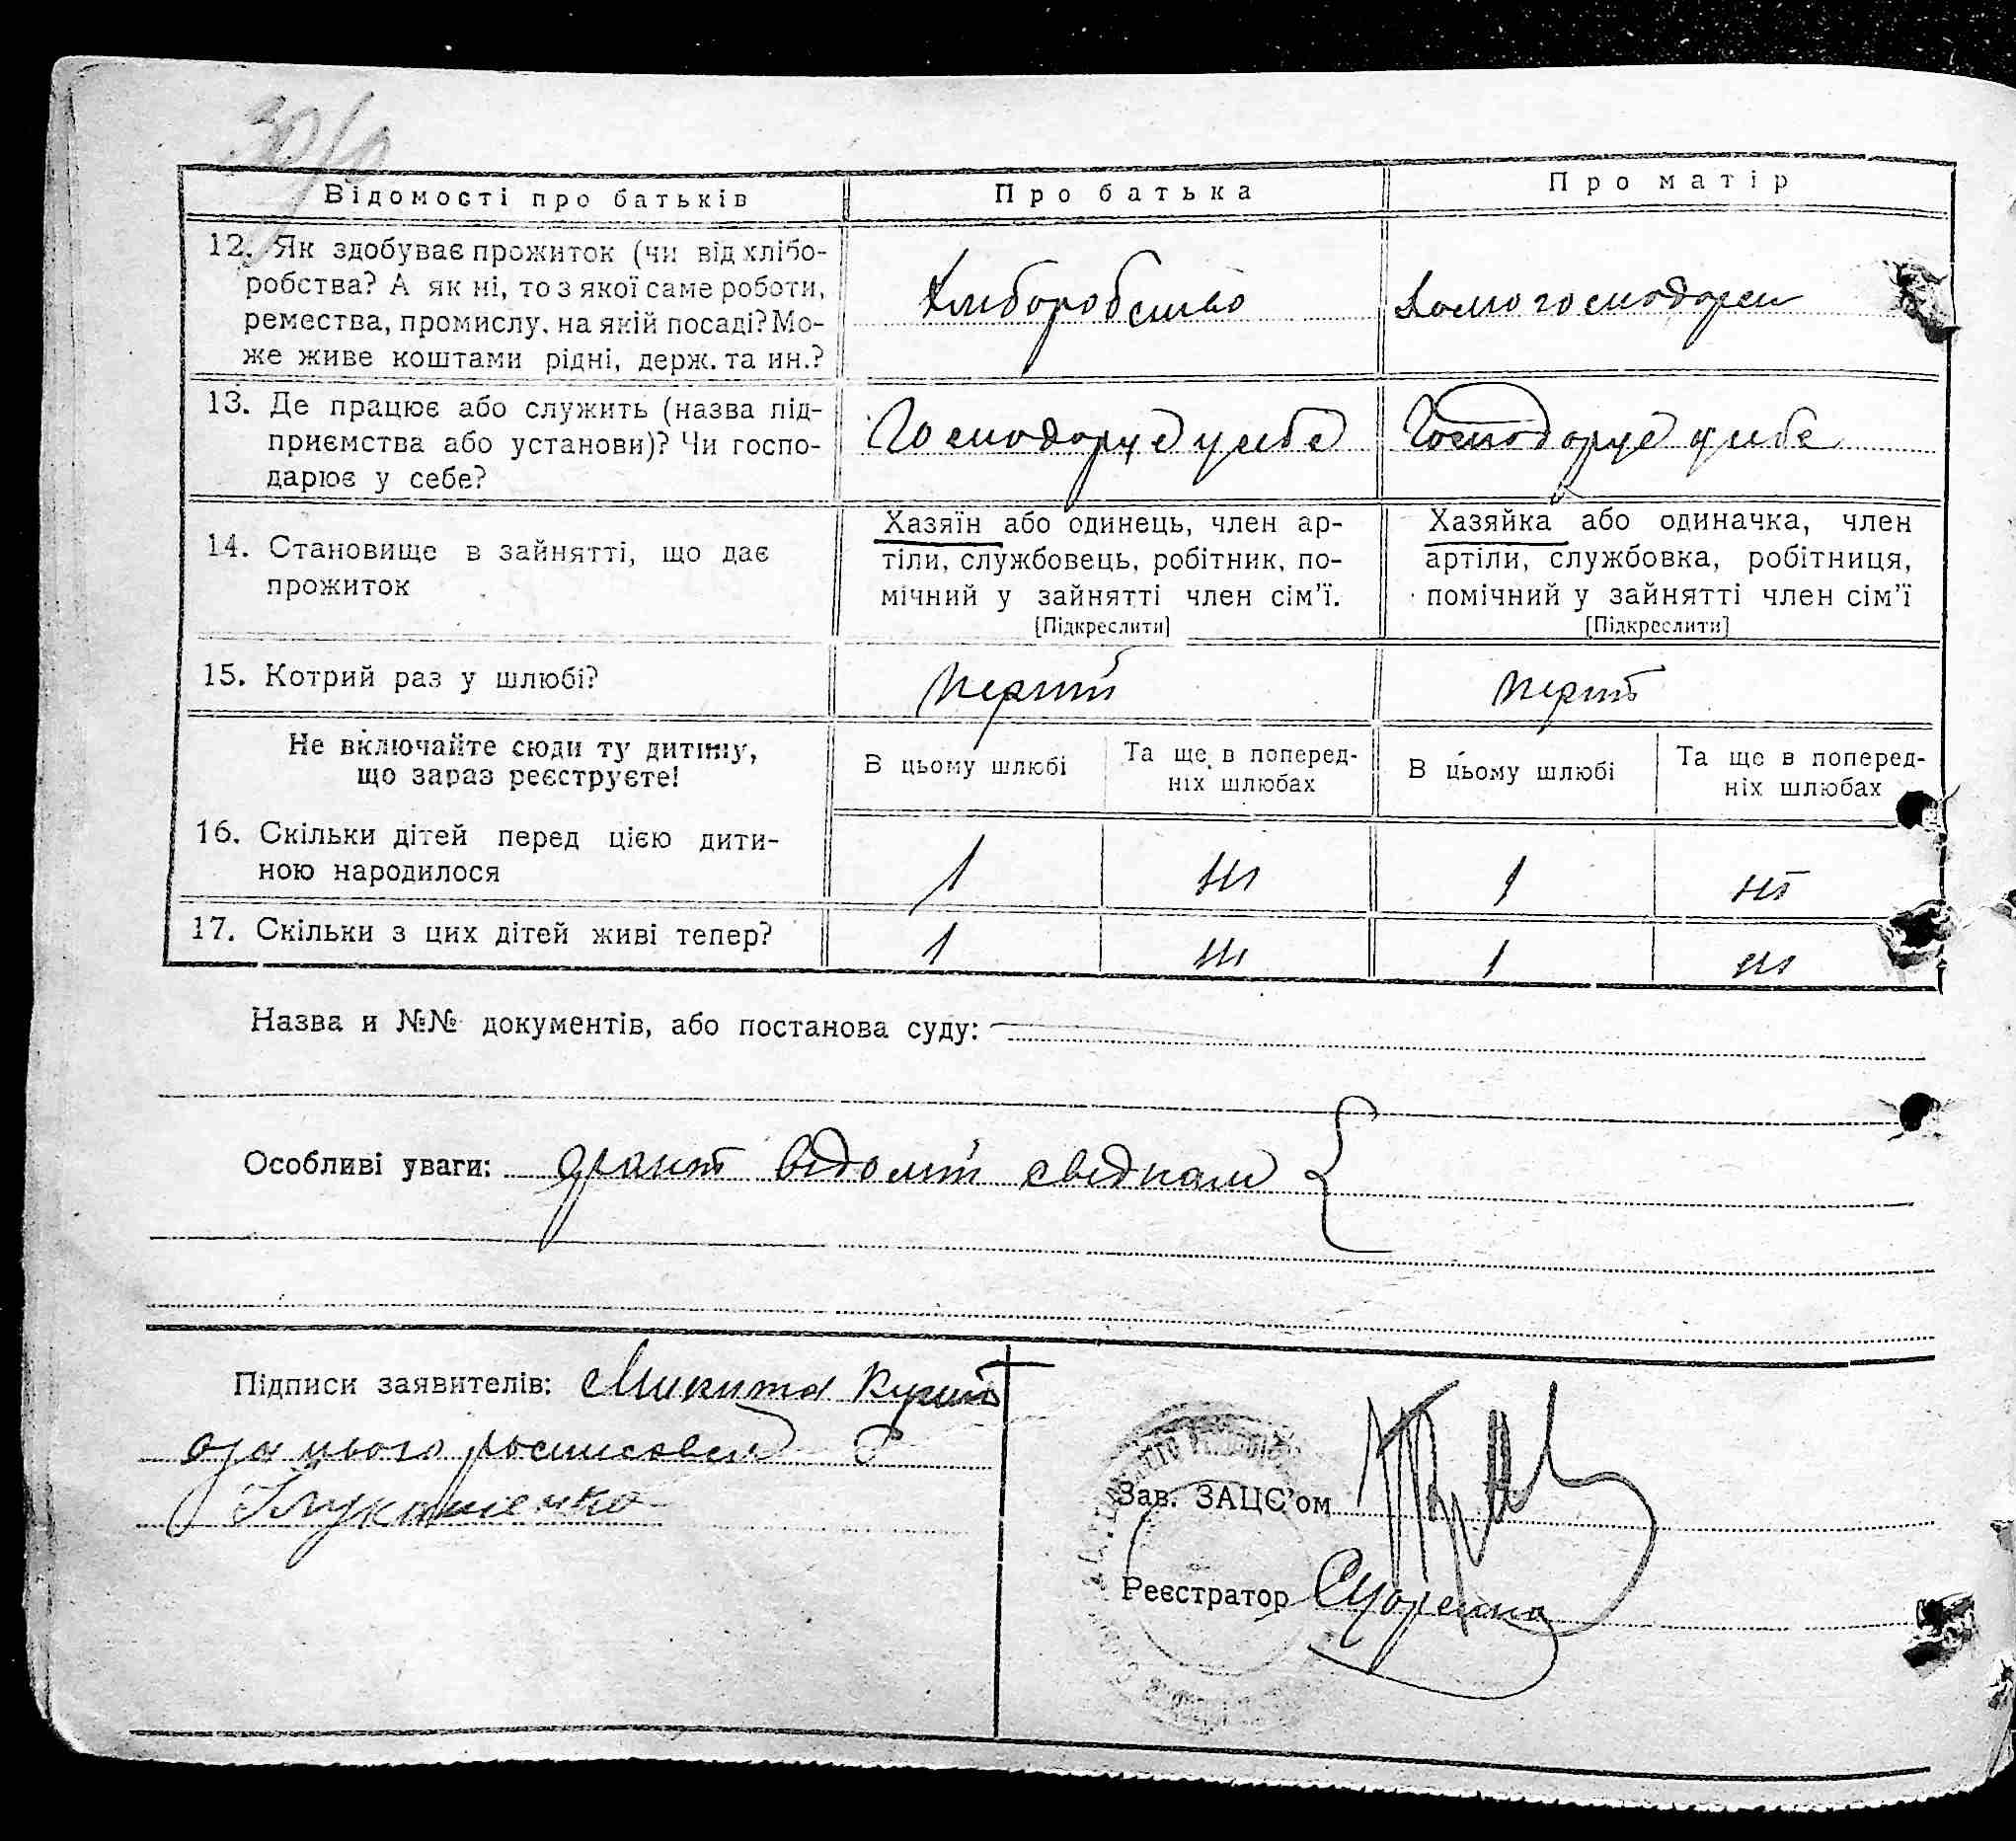 Відомості про батьків
Про батька
Про матір
12. Як здобуває прожиток (чи від хлібо-
робства? А як ні, то з якої саме роботи,
ремества, промислу, на якій посаді? Мо-
же живе коштами рідні, держ. та ин.?
Хліборобство
Домогосподарка
13. Де працює або служить (назва під-
приємства або установи)? Чи госпо-
дарює у себе?
Господарує у себе
Господарує у себе
14. Становище в зайнятті, що дає
прожиток
Хазяїн або одинець, член ар-
тіли, службовець, робітник, по-
мічний у зайнятті член сім’ї.
[Підкреслити]
Хазяйка або одиначка, член
артіли, службовка, робітниця,
помічний у зайнятті член сім’ї
[Підкреслити]
15. Котрий раз у шлюбі?
перший
перший
Не включайте сюди ту дитину,
що зараз реєструєте!
В цьому шлюбі
Та ще в поперед-
ніх шлюбах
В цьому шлюбі
Та ще в поперед-
ніх шлюбах
16. Скільки дітей перед цією дити-
ною народилося
1
ні
1
ні
17. Скільки з цих дітей живі тепер?
1
ні
1
ні
Назва и №№ документів, або постанова суду:
Особливі уваги: відомий
Підписи заявителів: Микита
Зав. ЗАЦС’ом
Реєстратор